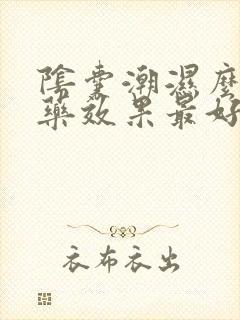 陰囊潮濕麼
藥效果最好
衣布衣出